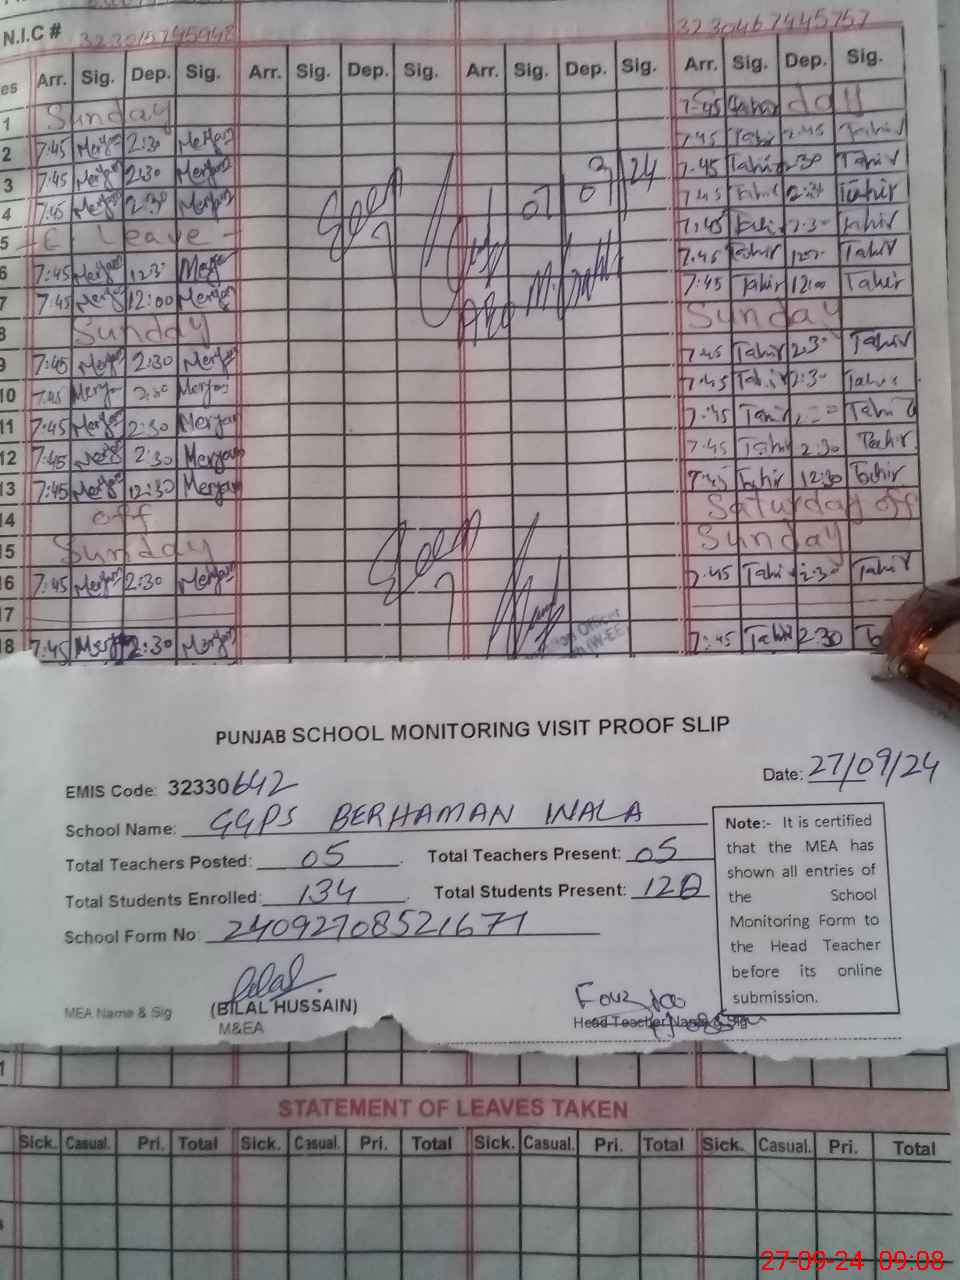 N.I.C #
es Arr. Sig. Dep. Sig. Arr. Sig. Dep. Sig. Arr. Sig. Dep. Sig. Arr. Sig. Dep. Sig.
1 Sunday 7:45 Tahir day
2 7:45 Meryam 2:30 Meryam 7:45 Tahir 2:45 Tahir
3 7:45 Meryam 2:30 Meryam 7:45 Tahir 2:30 Tahir
4 7:45 Meryam 2:30 Meryam 7:45 Tahir 2:30 Tahir
Seen 07/09/24
5 C. Leave 7:45 Tahir 2:30 Tahir
6 7:45 Meryam 12:30 Meryam 7:45 Tahir Tahir
7 7:45 Meryam 12:00 Meryam 7:45 Tahir 12:00 Tahir
8 Sunday Sunday
9 7:45 Meryam 2:30 Meryam 7:45 Tahir 2:30 Tahir
10 7:45 Meryam 2:30 Meryam 7:45 Tahir 2:30 Tahir
11 7:45 Meryam 2:30 Meryam 7:45 Tahir Tahir
12 7:45 Meryam 2:30 Meryam 7:45 Tahir 2:30 Tahir
13 7:45 Meryam 12:30 Meryam 7:45 Tahir 12:30 Tahir
14 off Saturday off
15 Sunday Seen Sunday
16 7:45 Meryam 2:30 Meryam 7:45 Tahir 2:30 Tahir
17
18 7:45 Meryam 2:30 Meryam 7:45 Tahir 2:30
PUNJAB SCHOOL MONITORING VISIT PROOF SLIP
EMIS Code: 32330642
Date: 27/09/24
School Name: GGPS BERHAMAN WALA
Total Teachers Posted: 05 Total Teachers Present: 05
Total Students Enrolled: 134 Total Students Present: 120
School Form No: 24092708521671
Note:- It is certified
that the MEA has
shown all entries of
the School
Monitoring Form to
the Head Teacher
before its online
submission.
Bilal
MEA Name & Sig (BILAL HUSSAIN)
M&EA
Fouzia
Head Teacher Name & Sig
1
STATEMENT OF LEAVES TAKEN
Sick. Casual. Pri. Total Sick. Casual. Pri. Total Sick. Casual. Pri. Total Sick. Casual. Pri. Total
27-09-24 09:08